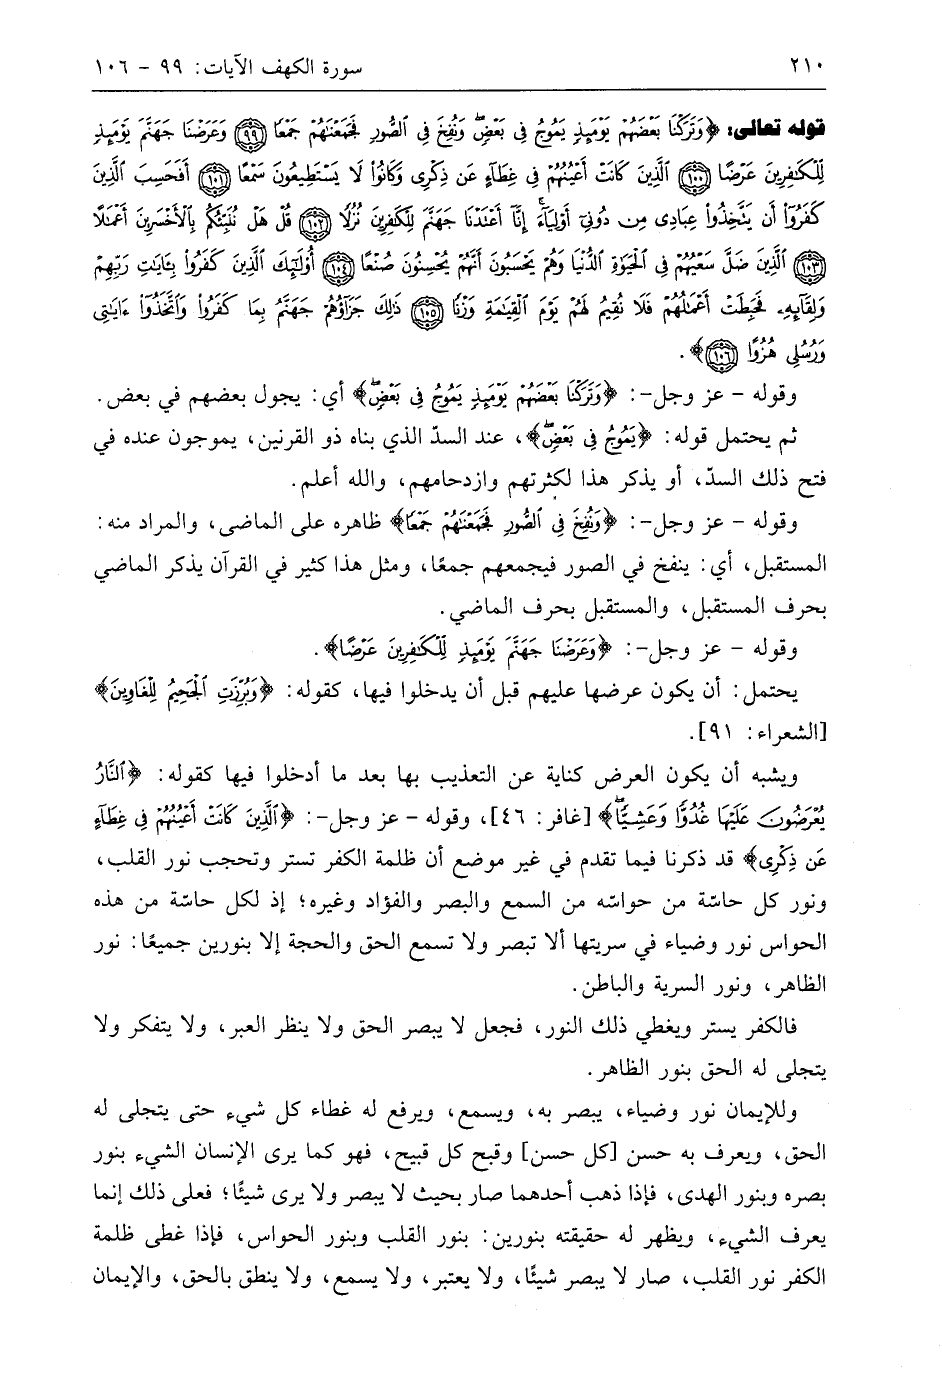 ٢١٠ سورة الكهف الآيات: ٩٩ - ١٠٦
قوله تعالى: ﴿وَتَرَكْنَا بَعْضَهُمْ يَوْمَئِذٍ يَمُوجُ فِي بَعْضٍ وَنُفِخَ فِي الصُّورِ فَجَمَعْنَاهُمْ جَمْعًا ﴿٩٩﴾ وَعَرَضْنَا جَهَنَّمَ يَوْمَئِذٍ
لِّلْكَافِرِينَ عَرْضًا ﴿١٠٠﴾ الَّذِينَ كَانَتْ أَعْيُنُهُمْ فِي غِطَاءٍ عَن ذِكْرِي وَكَانُوا لَا يَسْتَطِيعُونَ سَمْعًا ﴿١٠١﴾ أَفَحَسِبَ الَّذِينَ
كَفَرُوا أَن يَتَّخِذُوا عِبَادِي مِن دُونِي أَوْلِيَاءَ إِنَّا أَعْتَدْنَا جَهَنَّمَ لِلْكَافِرِينَ نُزُلًا ﴿١٠٢﴾ قُلْ هَلْ نُنَبِّئُكُم بِالْأَخْسَرِينَ أَعْمَالًا
﴿١٠٣﴾ الَّذِينَ ضَلَّ سَعْيُهُمْ فِي الْحَيَاةِ الدُّنْيَا وَهُمْ يَحْسَبُونَ أَنَّهُمْ يُحْسِنُونَ صُنْعًا ﴿١٠٤﴾ أُولَئِكَ الَّذِينَ كَفَرُوا بِآيَاتِ رَبِّهِمْ
وَلِقَائِهِ فَحَبِطَتْ أَعْمَالُهُمْ فَلَا نُقِيمُ لَهُمْ يَوْمَ الْقِيَامَةِ وَزْنًا ﴿١٠٥﴾ ذَلِكَ جَزَاؤُهُمْ جَهَنَّمُ بِمَا كَفَرُوا وَاتَّخَذُوا آيَاتِي
وَرُسُلِي هُزُوًا ﴿١٠٦﴾﴾.
وقوله - عز وجل-: ﴿وَتَرَكْنَا بَعْضَهُمْ يَوْمَئِذٍ يَمُوجُ فِي بَعْضٍ﴾ أي: يجول بعضهم في بعض.
ثم يحتمل قوله: ﴿يَمُوجُ فِي بَعْضٍ﴾، عند السدّ الذي بناه ذو القرنين، يموجون عنده في
فتح ذلك السدّ، أو يذكر هذا لكثرتهم وازدحامهم، والله أعلم.
وقوله - عز وجل-: ﴿وَنُفِخَ فِي الصُّورِ فَجَمَعْنَاهُمْ جَمْعًا﴾ ظاهره على الماضي، والمراد منه:
المستقبل، أي: ينفخ في الصور فيجمعهم جمعًا، ومثل هذا كثير في القرآن يذكر الماضي
بحرف المستقبل، والمستقبل بحرف الماضي.
وقوله - عز وجل-: ﴿وَعَرَضْنَا جَهَنَّمَ يَوْمَئِذٍ لِّلْكَافِرِينَ عَرْضًا﴾.
يحتمل: أن يكون عرضها عليهم قبل أن يدخلوا فيها، كقوله: ﴿وَبُرِّزَتِ الْجَحِيمُ لِلْغَاوِينَ﴾
[الشعراء: ٩١].
ويشبه أن يكون العرض كناية عن التعذيب بها بعد ما أدخلوا فيها كقوله: ﴿النَّارُ
يُعْرَضُونَ عَلَيْهَا غُدُوًّا وَعَشِيًّا﴾ [غافر: ٤٦]، وقوله - عز وجل-: ﴿الَّذِينَ كَانَتْ أَعْيُنُهُمْ فِي غِطَاءٍ
عَن ذِكْرِي﴾ قد ذكرنا فيما تقدم في غير موضع أن ظلمة الكفر تستر وتحجب نور القلب،
ونور كل حاسّة من حواسّه من السمع والبصر والفؤاد وغيره؛ إذ لكل حاسّة من هذه
الحواس نور وضياء في سريتها ألا تبصر ولا تسمع الحق والحجة إلا بنورين جميعًا: نور
الظاهر، ونور السرية والباطن.
فالكفر يستر ويغطي ذلك النور، فجعل لا يبصر الحق ولا ينظر العبر، ولا يتفكر ولا
يتجلى له الحق بنور الظاهر.
وللإيمان نور وضياء، يبصر به، ويسمع، ويرفع له غطاء كل شيء حتى يتجلى له
الحق، ويعرف به حسن [كل حسن] وقبح كل قبيح، فهو كما يرى الإنسان الشيء بنور
بصره وبنور الهدى، فإذا ذهب أحدهما صار بحيث لا يبصر ولا يرى شيئًا؛ فعلى ذلك إنما
يعرف الشيء، ويظهر له حقيقته بنورين: بنور القلب وبنور الحواس، فإذا غطى ظلمة
الكفر نور القلب، صار لا يبصر شيئًا، ولا يعتبر، ولا يسمع، ولا ينطق بالحق، والإيمان